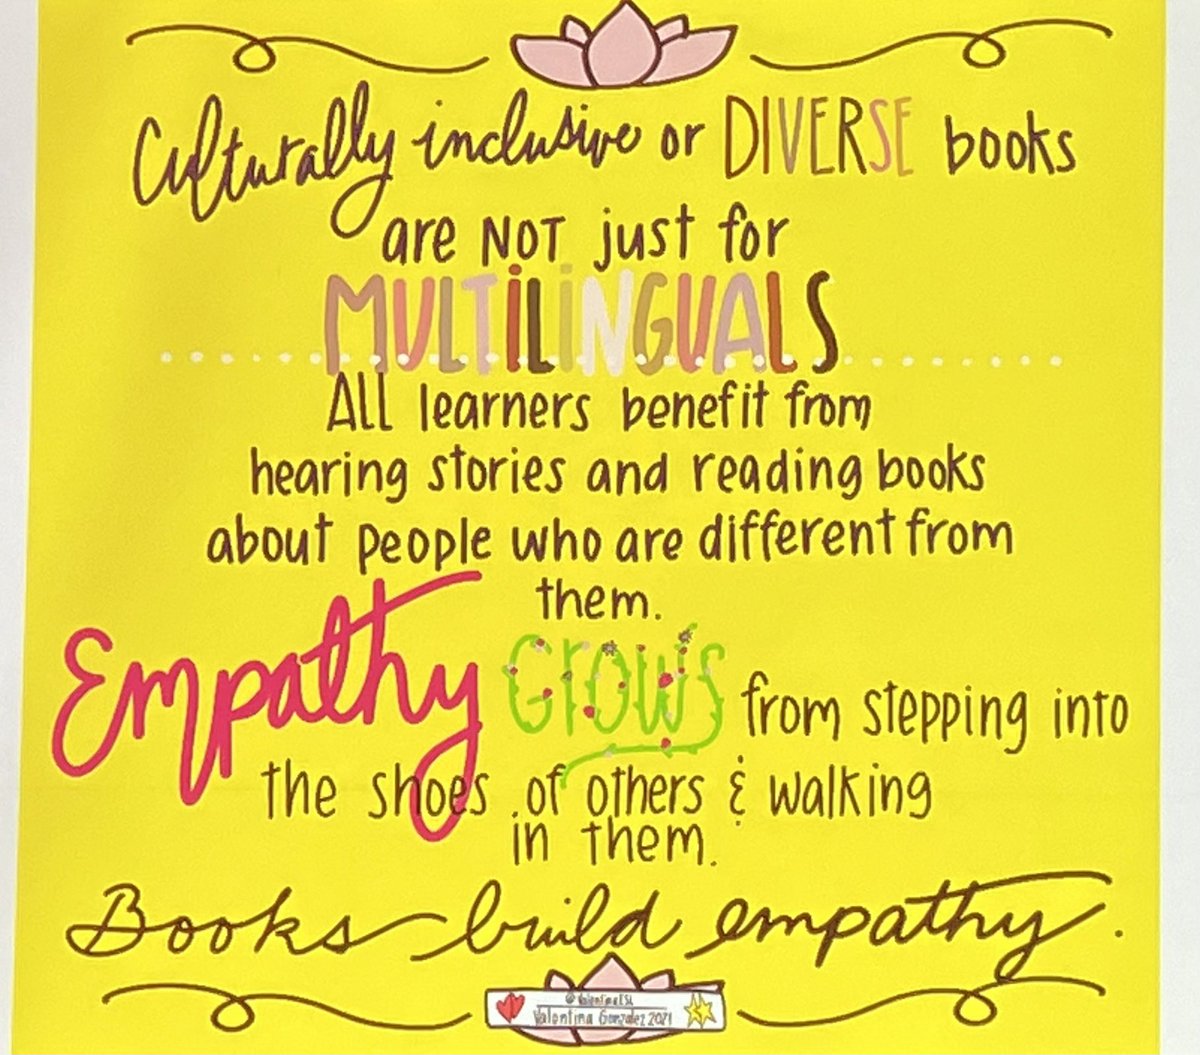 Culturally inclusive or DIVERSE books
are NOT just for
MULTiLiNGUALS
All learners benefit from
hearing stories and reading books
about people who are different from
them.
Empathy Grows from stepping into
the shoes of others & walking
in them.
Books build empathy.
@ValentinaESL
Valentina Gonzalez 2021